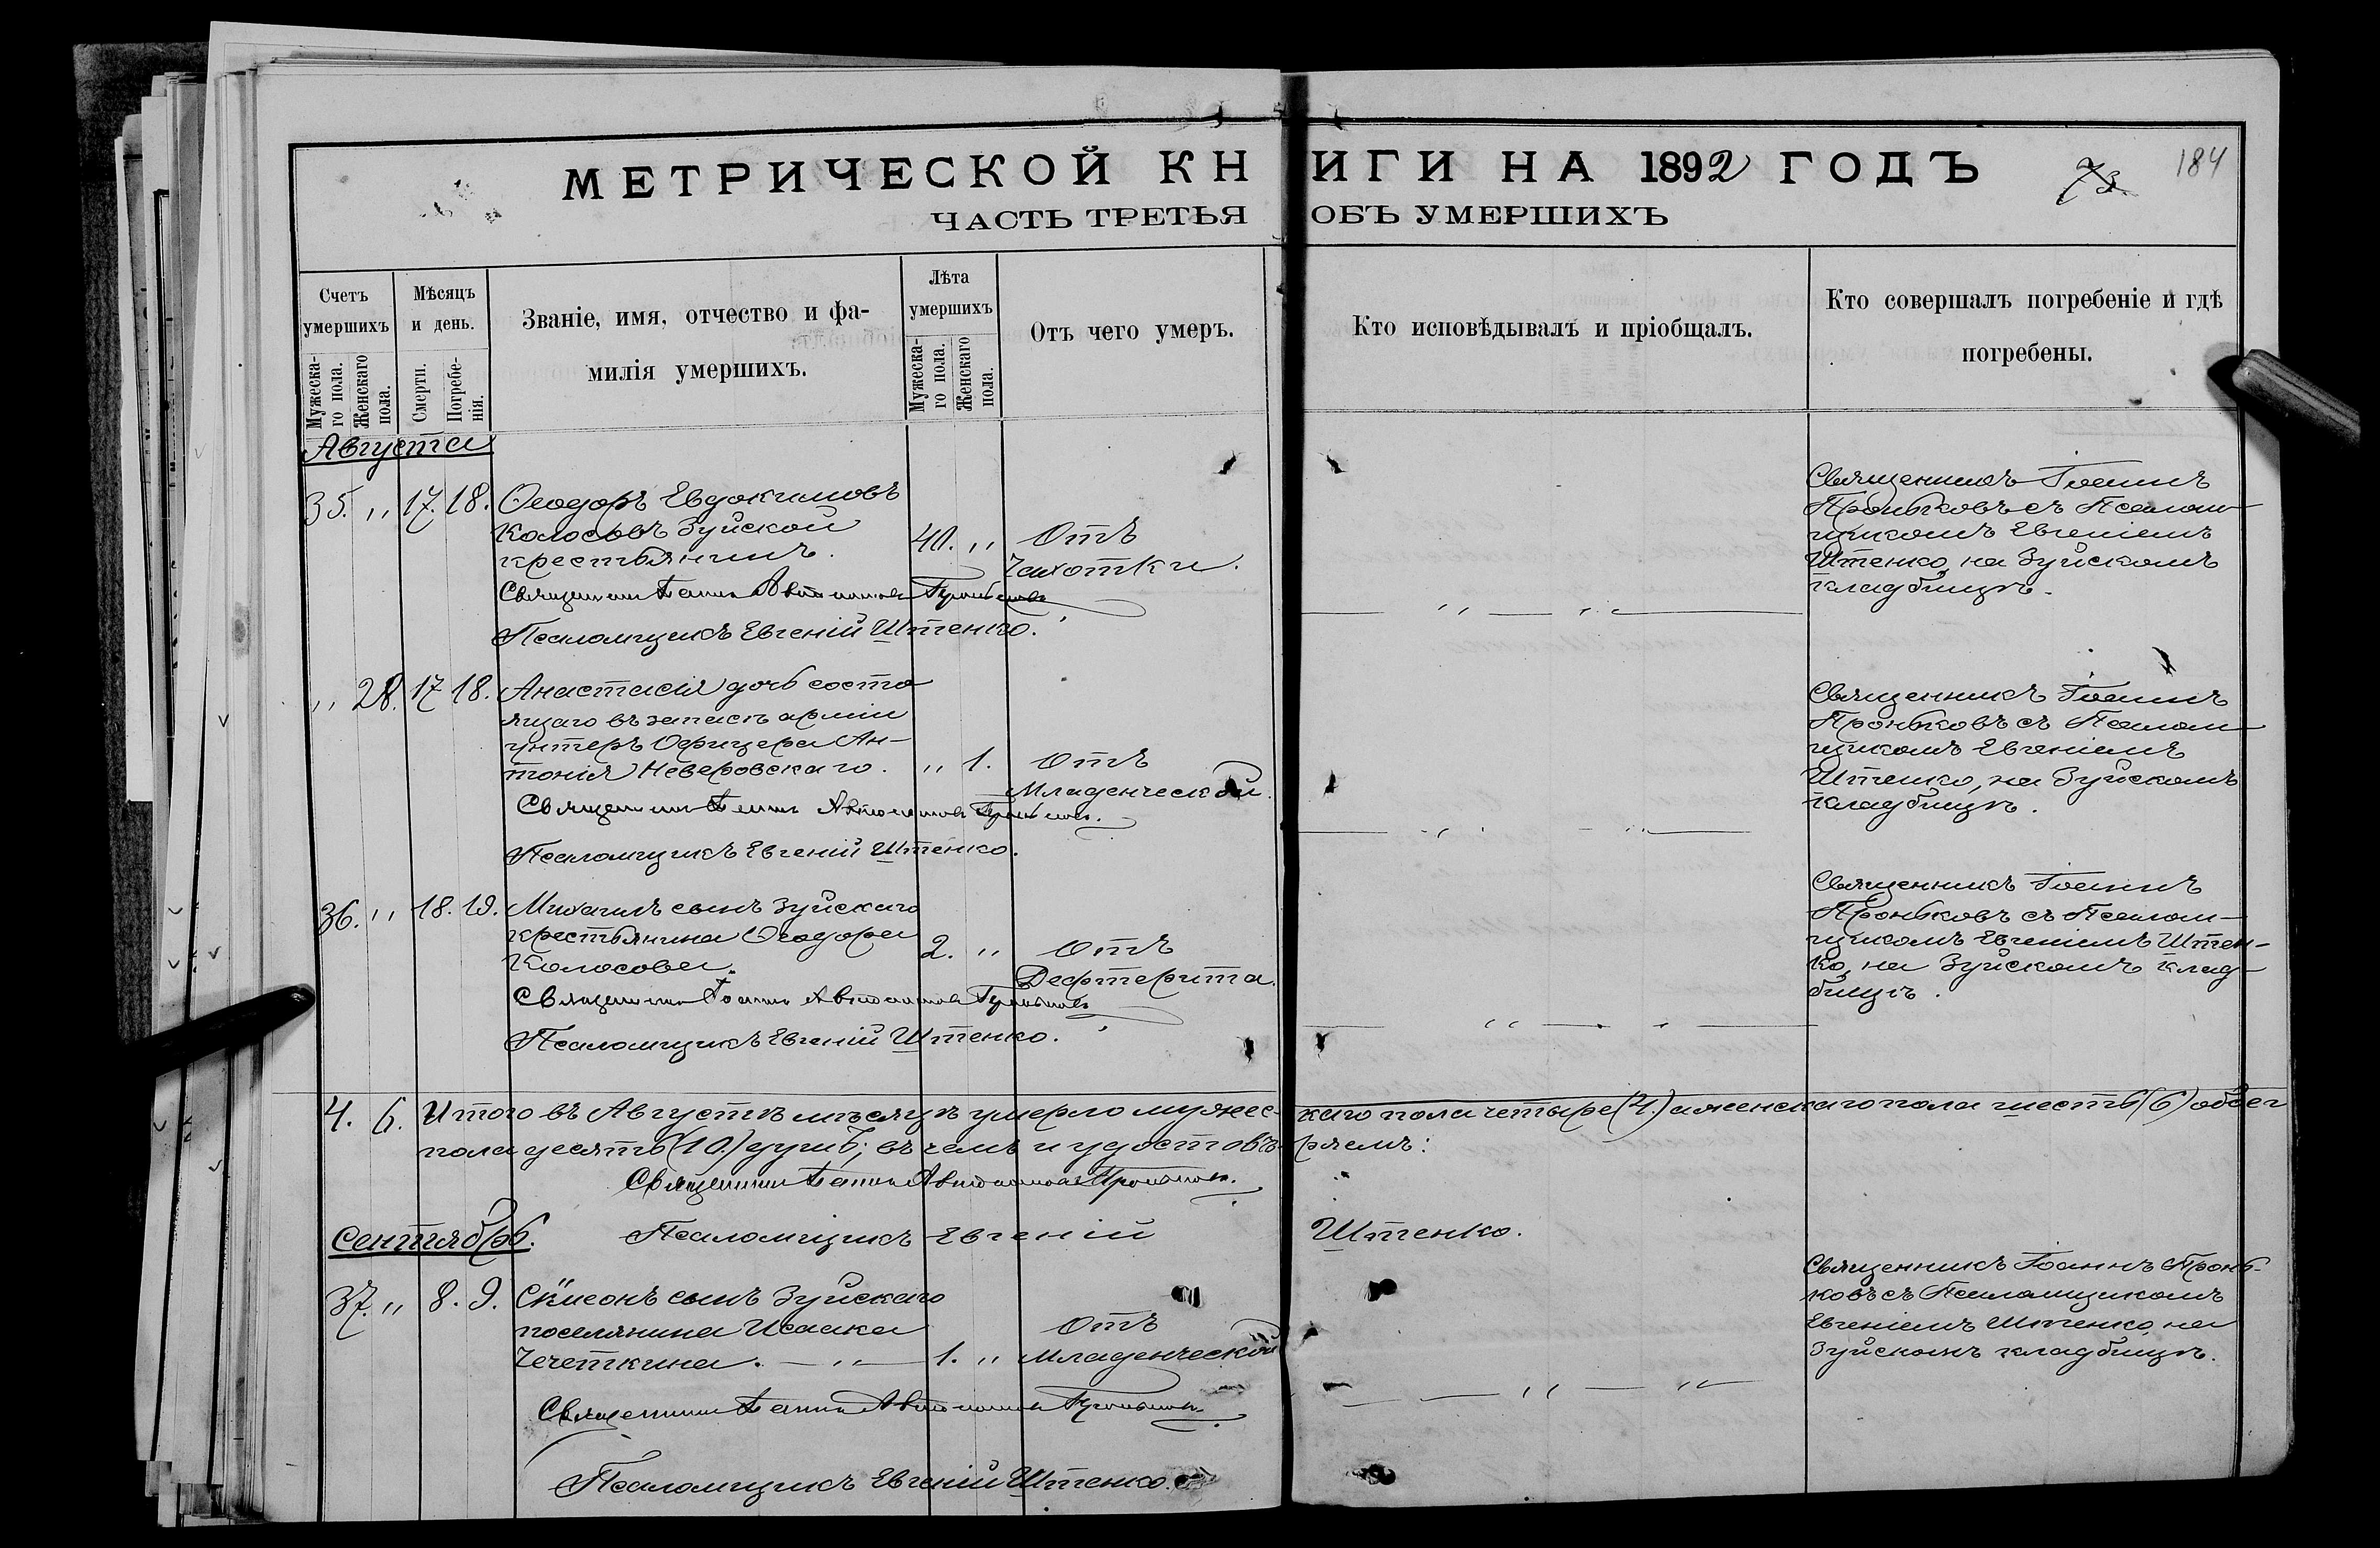 МЕТРИЧЕСКОЙ КНИГИ НА 1892 ГОДЪ
73
184
ЧАСТЬ ТРЕТЬЯ ОБЪ УМЕРШИХЪ
Счетъ умершихъ
Мужеска-го пола.
Женскаго пола.
Мѣсяцъ и день.
Смерти.
Погребе-нія.
Званіе, имя, отчество и фа-
милія умершихъ.
Лѣта умершихъ
Мужеска-го пола.
Женскаго пола.
Отъ чего умеръ.
Кто исповѣдывалъ и пріобщалъ.
Кто совершалъ погребеніе и гдѣ
погребены.
Августа
35. " 17. 18. Ѳеодоръ Евдокимовъ
Колосовъ Зуйской
крестьянинъ.
40. " Отъ
Чахотки.
Священникъ Іоаннъ Автономовъ Проньковъ
Псаломщикъ Евгеній Штенко.
Священникъ Іоаннъ
Проньковъ съ Псалом-
щикомъ Евгеніемъ
Штенко, на Зуйскомъ
кладбищѣ.
" 28. 17 18. Анастасія дочь состо
ящаго въ запасѣ арміи
унтеръ Офицера Ан-
тонія Неверовскаго. " 1. Отъ
Младенческой.
Священникъ Іоаннъ Автономовъ Проньковъ.
Псаломщикъ Евгеній Штенко.
Священникъ Іоаннъ
Проньковъ съ Псалом-
щикомъ Евгеніемъ
Штенко, на Зуйскомъ
кладбищѣ.
36. " 18. 19. Михаилъ сынъ Зуйскаго
крестьянина Ѳеодора
Колосова.
2. " Отъ
Дефтерита.
Священникъ Іоаннъ Автономовъ Проньковъ
Псаломщикъ Евгеній Штенко.
Священникъ Іоаннъ
Проньковъ съ Псалом-
щикомъ Евгеніемъ Штен-
ко, на Зуйскомъ клад-
бищѣ.
4. 6. Итого въ Августѣ мѣсяцѣ умерло мужес-каго пола четыре (4.) а женскаго пола шесть (6) обоег
пола десять (10.) душъ; въ чемъ и удостовѣ-ряемъ:
Священникъ Іоаннъ Автономовъ Проньковъ.
Псаломщикъ Евгеній Штенко.
Сентябрь.
37. " 8. 9. Сѵмеонъ сынъ Зуйскаго
поселянина Исаака
Чечеткина. — " — 1. "
Отъ
Младенческой
Священникъ Іоаннъ Автономовъ Проньковъ
Псаломщикъ Евгеній Штенко.
Священникъ Іоаннъ Пронь-
ковъ съ Псаломщикомъ
Евгеніемъ Штенко, на
Зуйскомъ кладбищѣ.